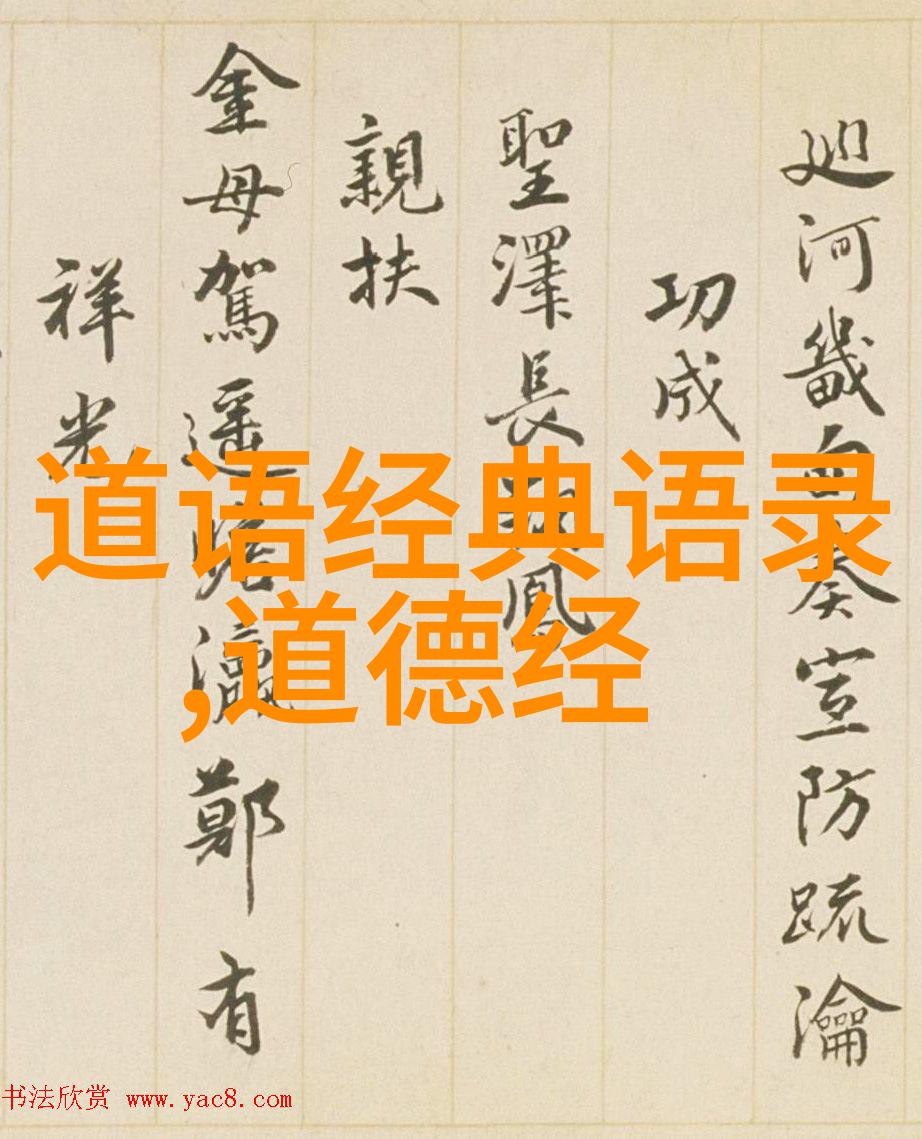 廵河畿甸奏宣防疏瀹
功成
聖澤長鳳
親扶
金母駕遥瀛鄭有
祥光
道语经典语录
,道德经
书法欣赏 www.yac8.com